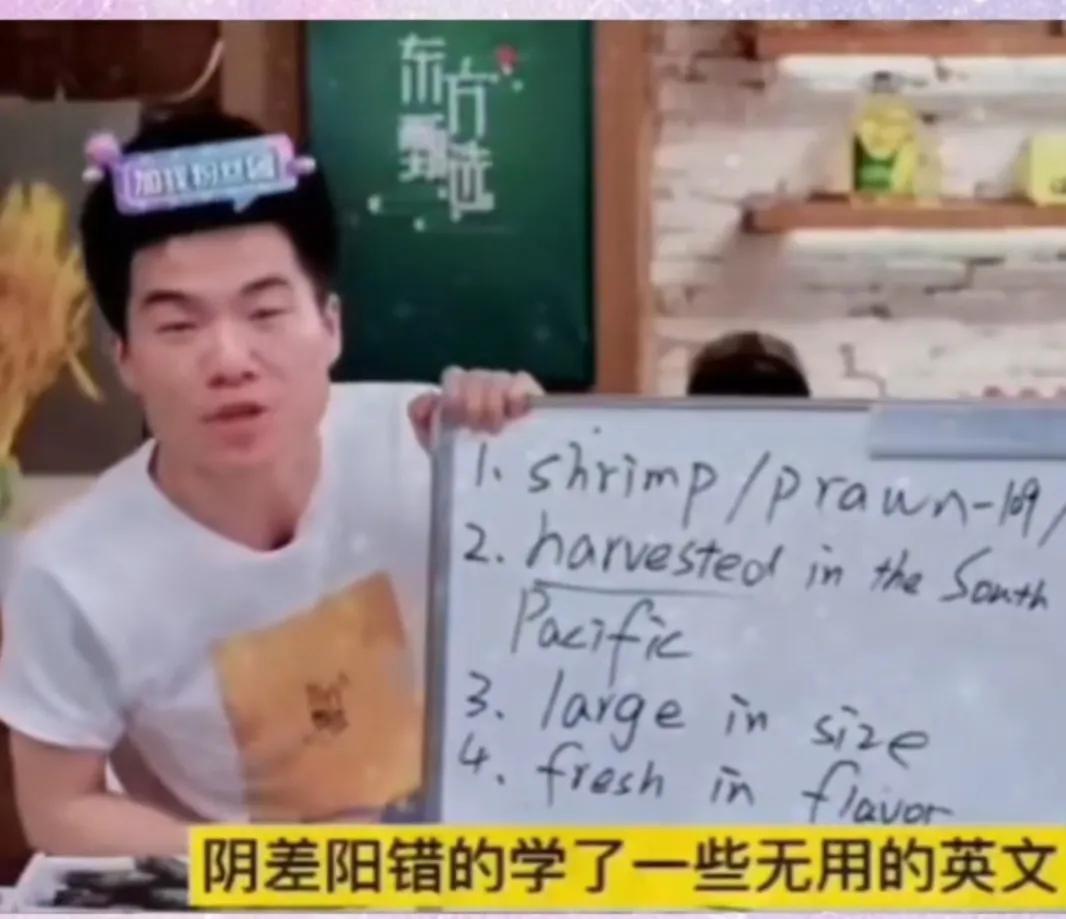 东方
甄选
加我粉丝团
1. shrimp/prawn-169/
2. harvested in the South
Pacific
3. large in size
4. fresh in flavor
阴差阳错的学了一些无用的英文